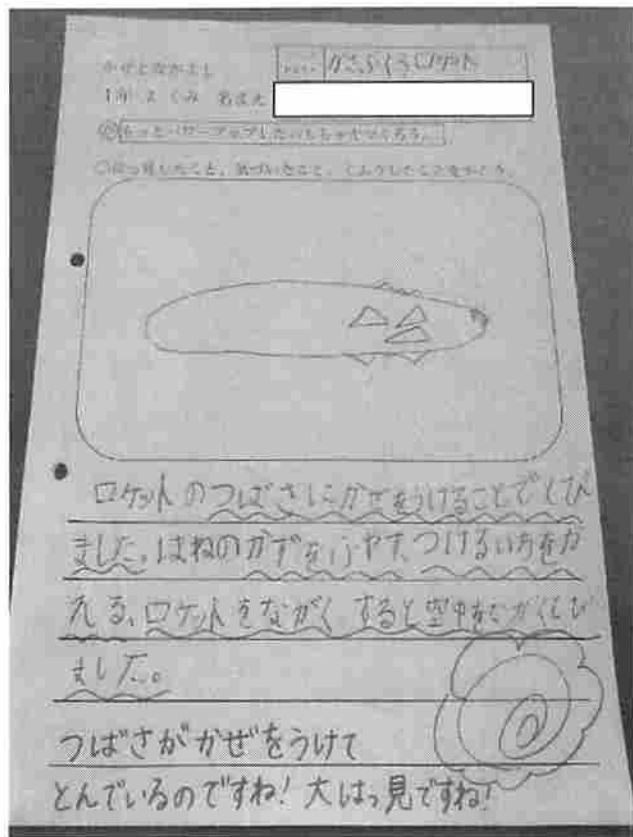 かぜとなかよし
かさぶくろロケット
1年 2 くみ 名まえ
◎もっとパワーアップしたおもちゃをつくろう。
○はっ見したこと、気づいたこと、くふうしたことをかこう。
ロケットのつばさにかぜをうけることでとび
ました。はねのカズをふやす、つけるいちをか
える、ロケットをながくすると空中をながくとび
ました。
つばさがかぜをうけて
とんでいるのですね！大はっ見ですね！